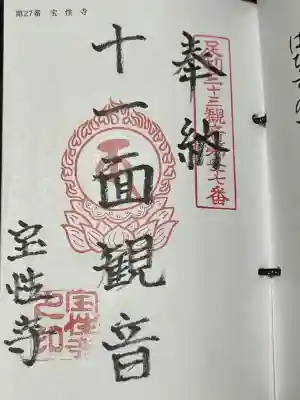 第27番 宝性寺
奉納
足利三十三観音第廿七番
十一面観音
宝性寺
宝性寺之印